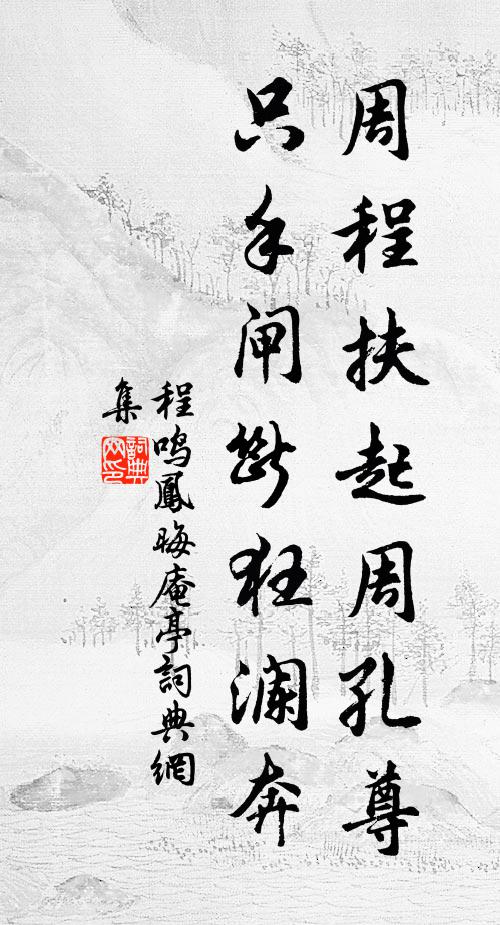 周程扶起周孔尊
只手闸断狂澜奔
程鳴鳳晦庵亭詞典網
集
詞典網印